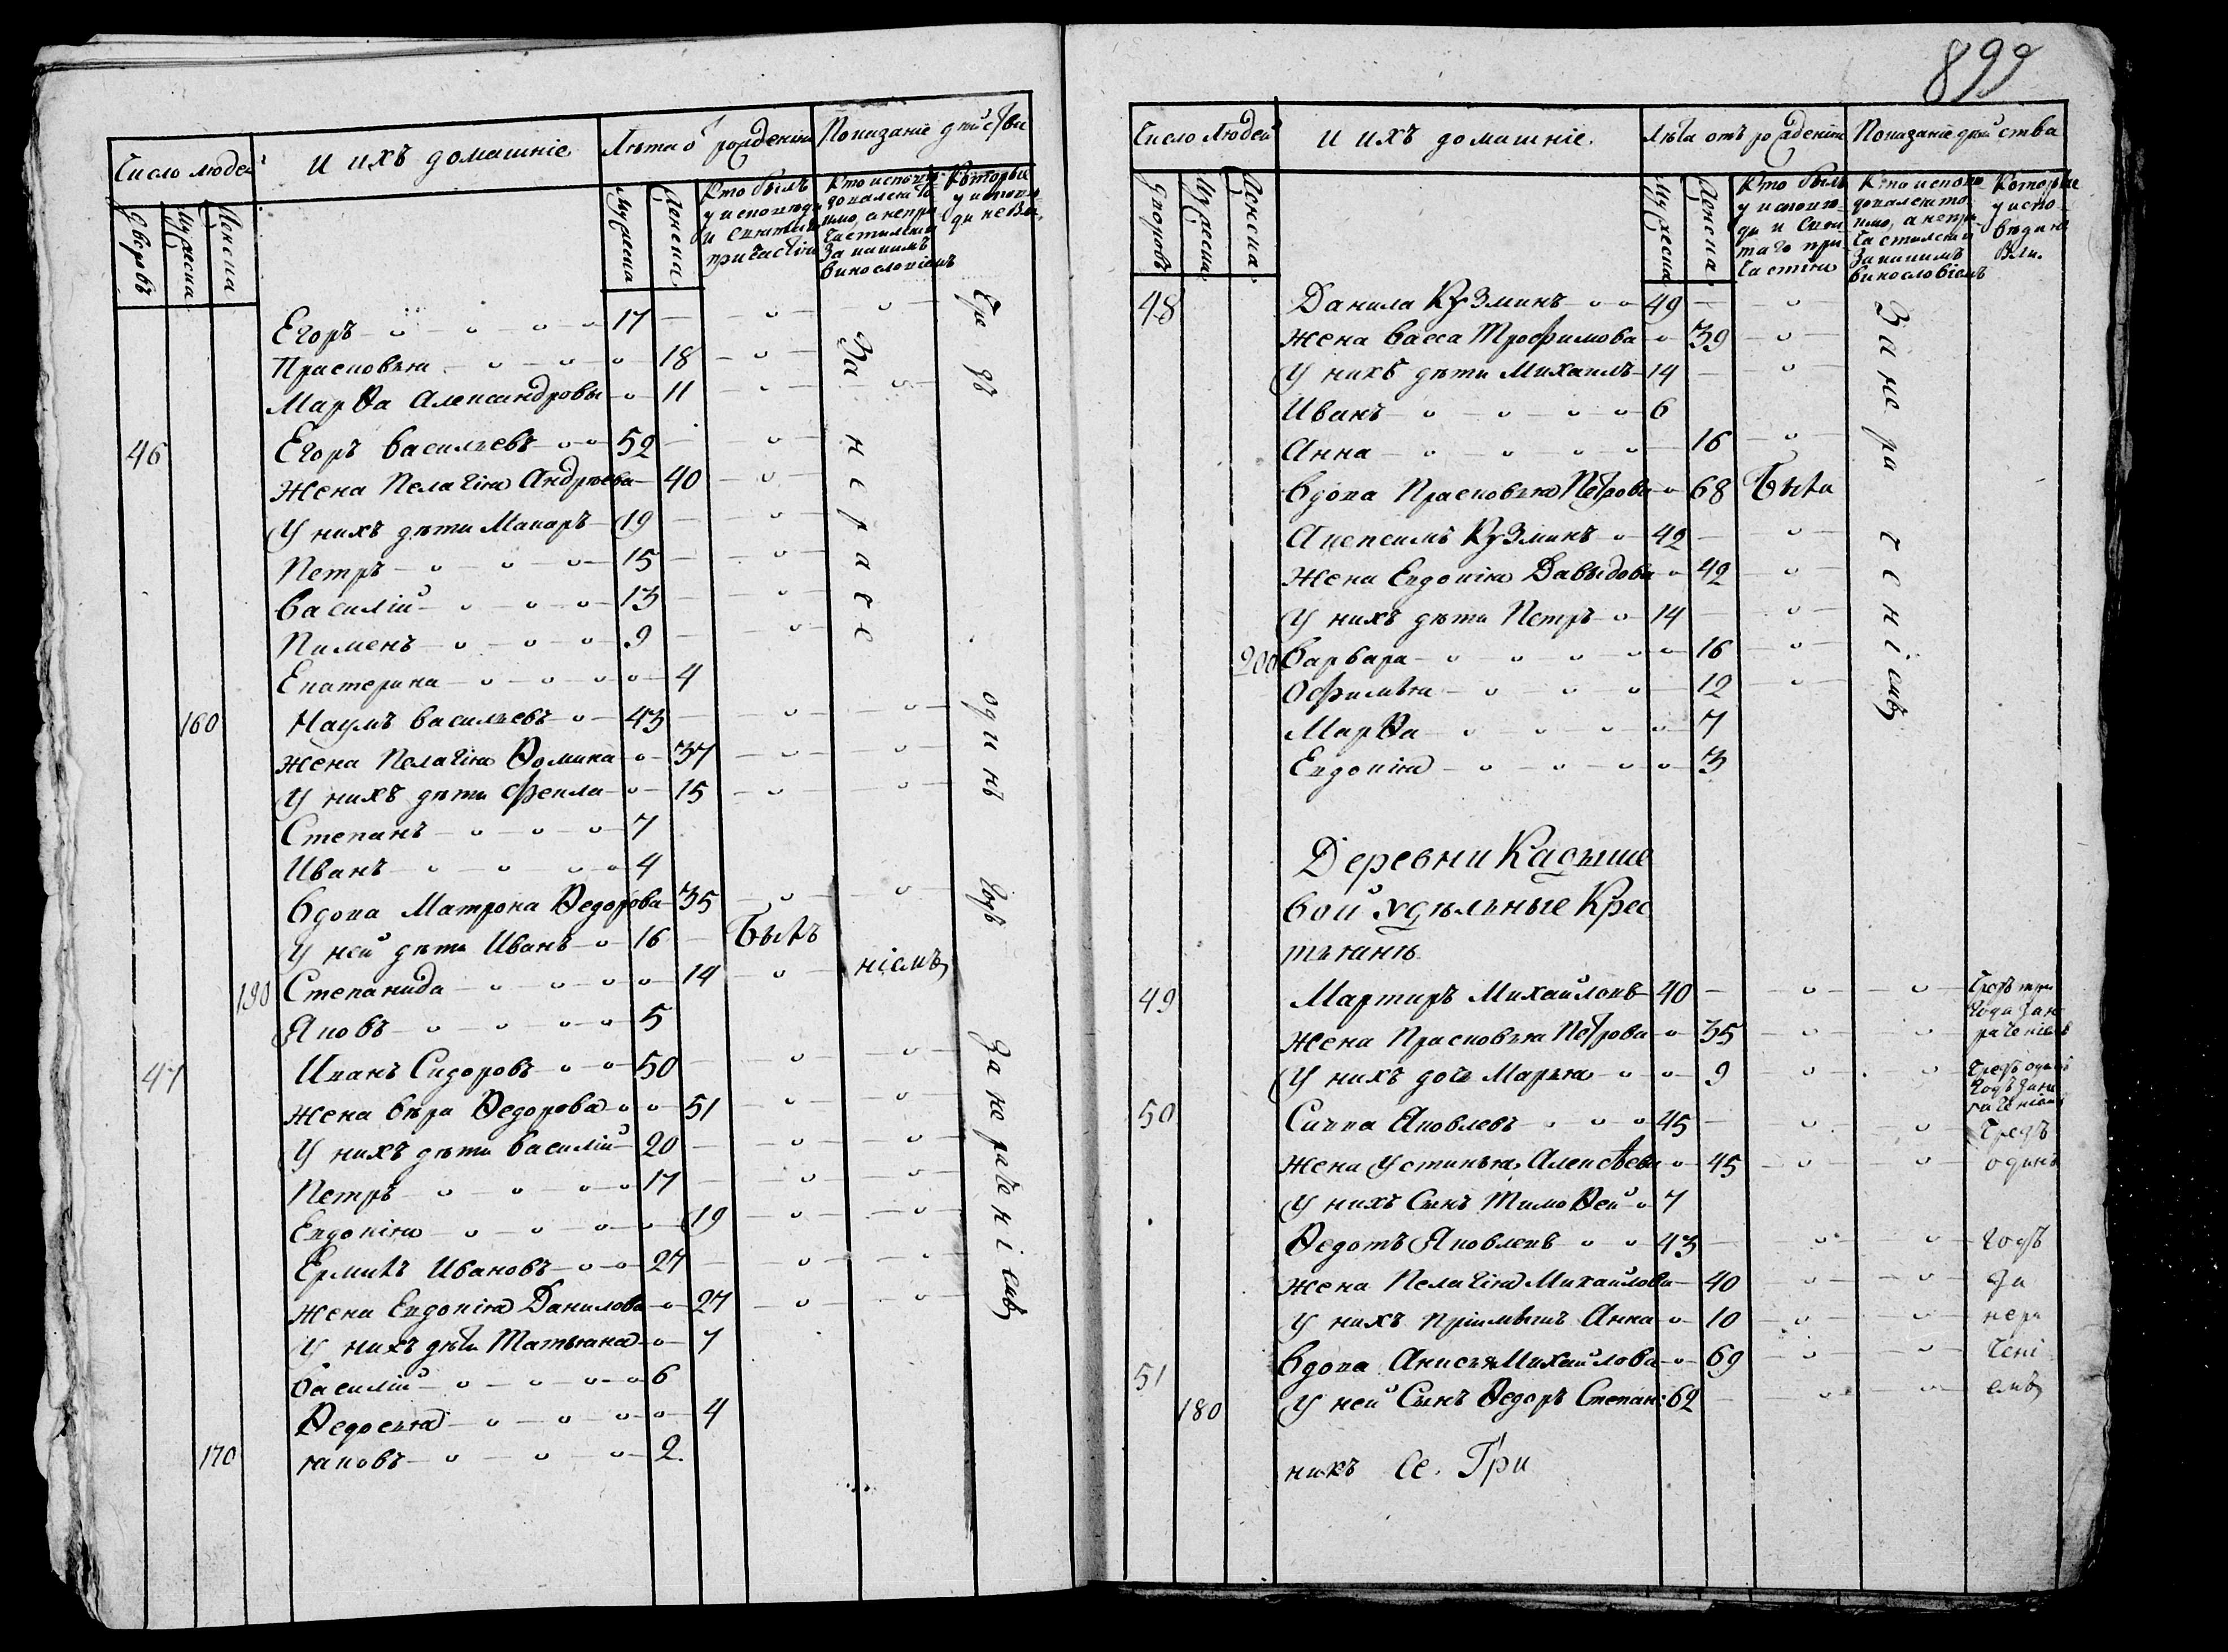 899
Число людей
И ихъ домашніе
Лѣта о рожденія
Показаніе дѣйства
Дворовъ
Мужеска
Женска
Мужеска
Женска
Кто былъ
у исповѣди
и святаго
причастія
Кто исповѣ
довался то
кмо, а не при
частился и
за какимъ
винословіемъ
Которые
у испове
ди не бы
Егоръ 17
Прасковья 18
Марѳа Александровы 11
46 Егоръ Васильевъ 52
Жена Пелагія Андрѣева 40
У нихъ дѣти Макаръ 19
Петръ 15
Василій 13
Пименъ 9
Екатерина 4
160 Наумъ Васильевъ 43
Жена Пелагія Ѳомина 37
У нихъ дѣти Фекла 15
Степанъ 7
Иванъ 4
Вдова Матрона Ѳедорова 35
У ней дѣти Иванъ 16 Былъ
190 Степанида 14
Яковъ 5
47 Иванъ Сидоровъ 50
Жена Вѣра Ѳедорова 51
У нихъ дѣти Василій 20
Петръ 17
Евдокія 19
Ермилъ Ивановъ 27
Жена Евдокія Данилова 27
У нихъ дѣти Татьяна 7
Василій 6
Ѳедосья 4
170 Яковъ 2
За нераче
ніемъ
Чрезъ одинъ годъ за нераченіемъ
Число Людей
И ихъ домашніе.
Лѣта отъ рожденія
Показаніе дѣйства
Дворовъ
Мужеска
Женска
Мужеска
Женска
Кто былъ
у испове
ди и свя
таго при
частія
Кто испове
довался то
кмо, а не при
частился и
за какимъ
винословіемъ
Которые
у испо
вѣди не
были.
48 Данила Кузминъ 49
Жена Васса Трофимова 39
У нихъ дѣти Михаилъ 14
Иванъ 6
Анна 16
Вдова Прасковья Петрова 68 Была
Акепсимъ Кузминъ 42
Жена Евдокія Давыдова 42
У нихъ дѣти Петръ 14
200 Варвара 16
Офимья 12
Марѳа 7
Евдокія 3
За нераченіемъ
Деревни Кадыше
вой удѣльные Крес
тьяне
49 Мартиръ Михайловъ 40
Жена Прасковья Петрова 35
У нихъ дочь Марья 9
Чрезъ три
года за не
раченіемъ
Чрезъ одинъ
годъ за не
раченіемъ
50 Савва Яковлевъ 45
Жена Устинья Алексѣева 45
У нихъ Сынъ Тимоѳей 7
Ѳедотъ Яковлевъ 43
Жена Пелагія Михайлова 40
У нихъ пріимышъ Анна 10
51 Вдова Анисья Михайлова 69
180 У ней Сынъ Ѳедоръ Степан: 62
Чрезъ
одинъ
годъ
За
нера
чені
емъ
никъ Се. Гри